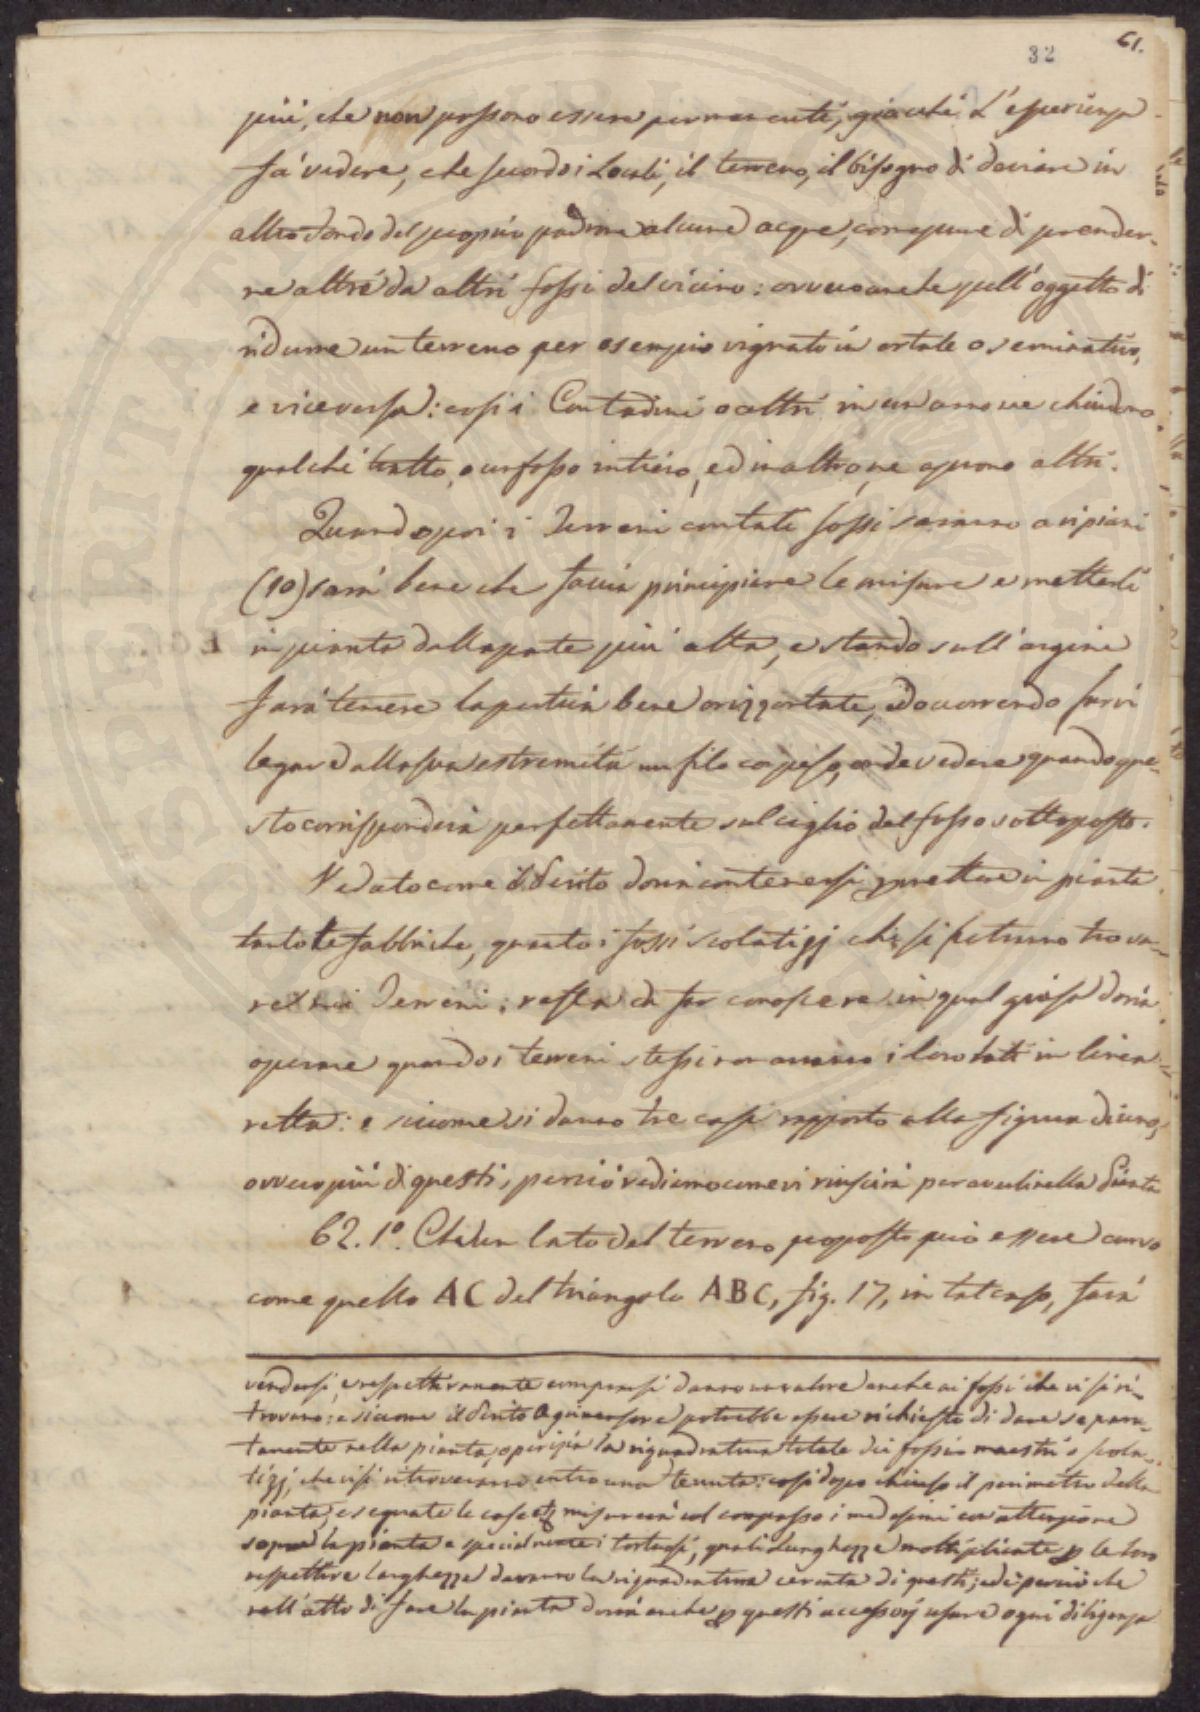 32 61.
più, che non possono essere permanenti, giacchè l'esperienza
fà vedere, che secondo i Locali, il terreno, il bisogno di deviare in
altro fondo del proprio padrone alcune acque, come pure di prender-
ne altre da altri fossi del vicino: ovvero anche sull'oggetto di
ridurre un terreno per esempio vignato in ortale o seminativo,
e viceversa: così i Contadini o altri in un anno ne chiudono
qualche tratto, o un fosso intiero, ed in altro, ne aprono altri.
Quando poi i Terreni con tali fossi saranno a ripiani
(10) sarà bene che faccia principiare le misure e metterle
in pianta dalla parte più alta, e stando sull'argine
farà tenere la pertica bene orizzontale, ed occorrendo farvi
legare dalla sua estremità un filo co' peso, onde vedere quando que-
sto corrisponderà perfettamente sul ciglio del fosso sottoposto.
Vedato come il Perito dovrà contenersi p mettere in pianta
tanto le fabbriche, quanto i fossi scolatizj che si potranno trova-
re nei Terreni; resta da far conoscere in qual guisa dovrà
operare quando i terreni stessi non avranno i loro lati in linea
retta: e siccome si danno tre casi rapporto alla figura di uno,
ovvero più di questi, perciò vediamo come vi riuscirà per averli nella Pianta
62. 1º. Che un lato del terreno proposto può essere curvo
come quello AC del triangolo ABC, fig. 17, in tal caso, farà
vendersi, e respettivamente comprarsi danno un valore anche ai fossi che vi si ri-
trovano: e siccome il Perito Agrimensore potrebbe essere richiesto di dare separa-
tamente nella pianta, o perizia la riquadratura totale dei fossi o maestri o scola-
tizj, che visi ritroveranno entro una tenuta: così dopo chiuso il perimetro della
pianta; eseguate le cose misurerà col compasso i medesimi con attenzione
sopra la pianta e specialmente i tortuosi, quali lunghezze moltiplicate p le loro
respettive larghezze daranno la riquadratura cercata di questi; ed è perciò che
nell'atto di fare la pianta dovrà anche p questi accessorj usare ogni diligenza